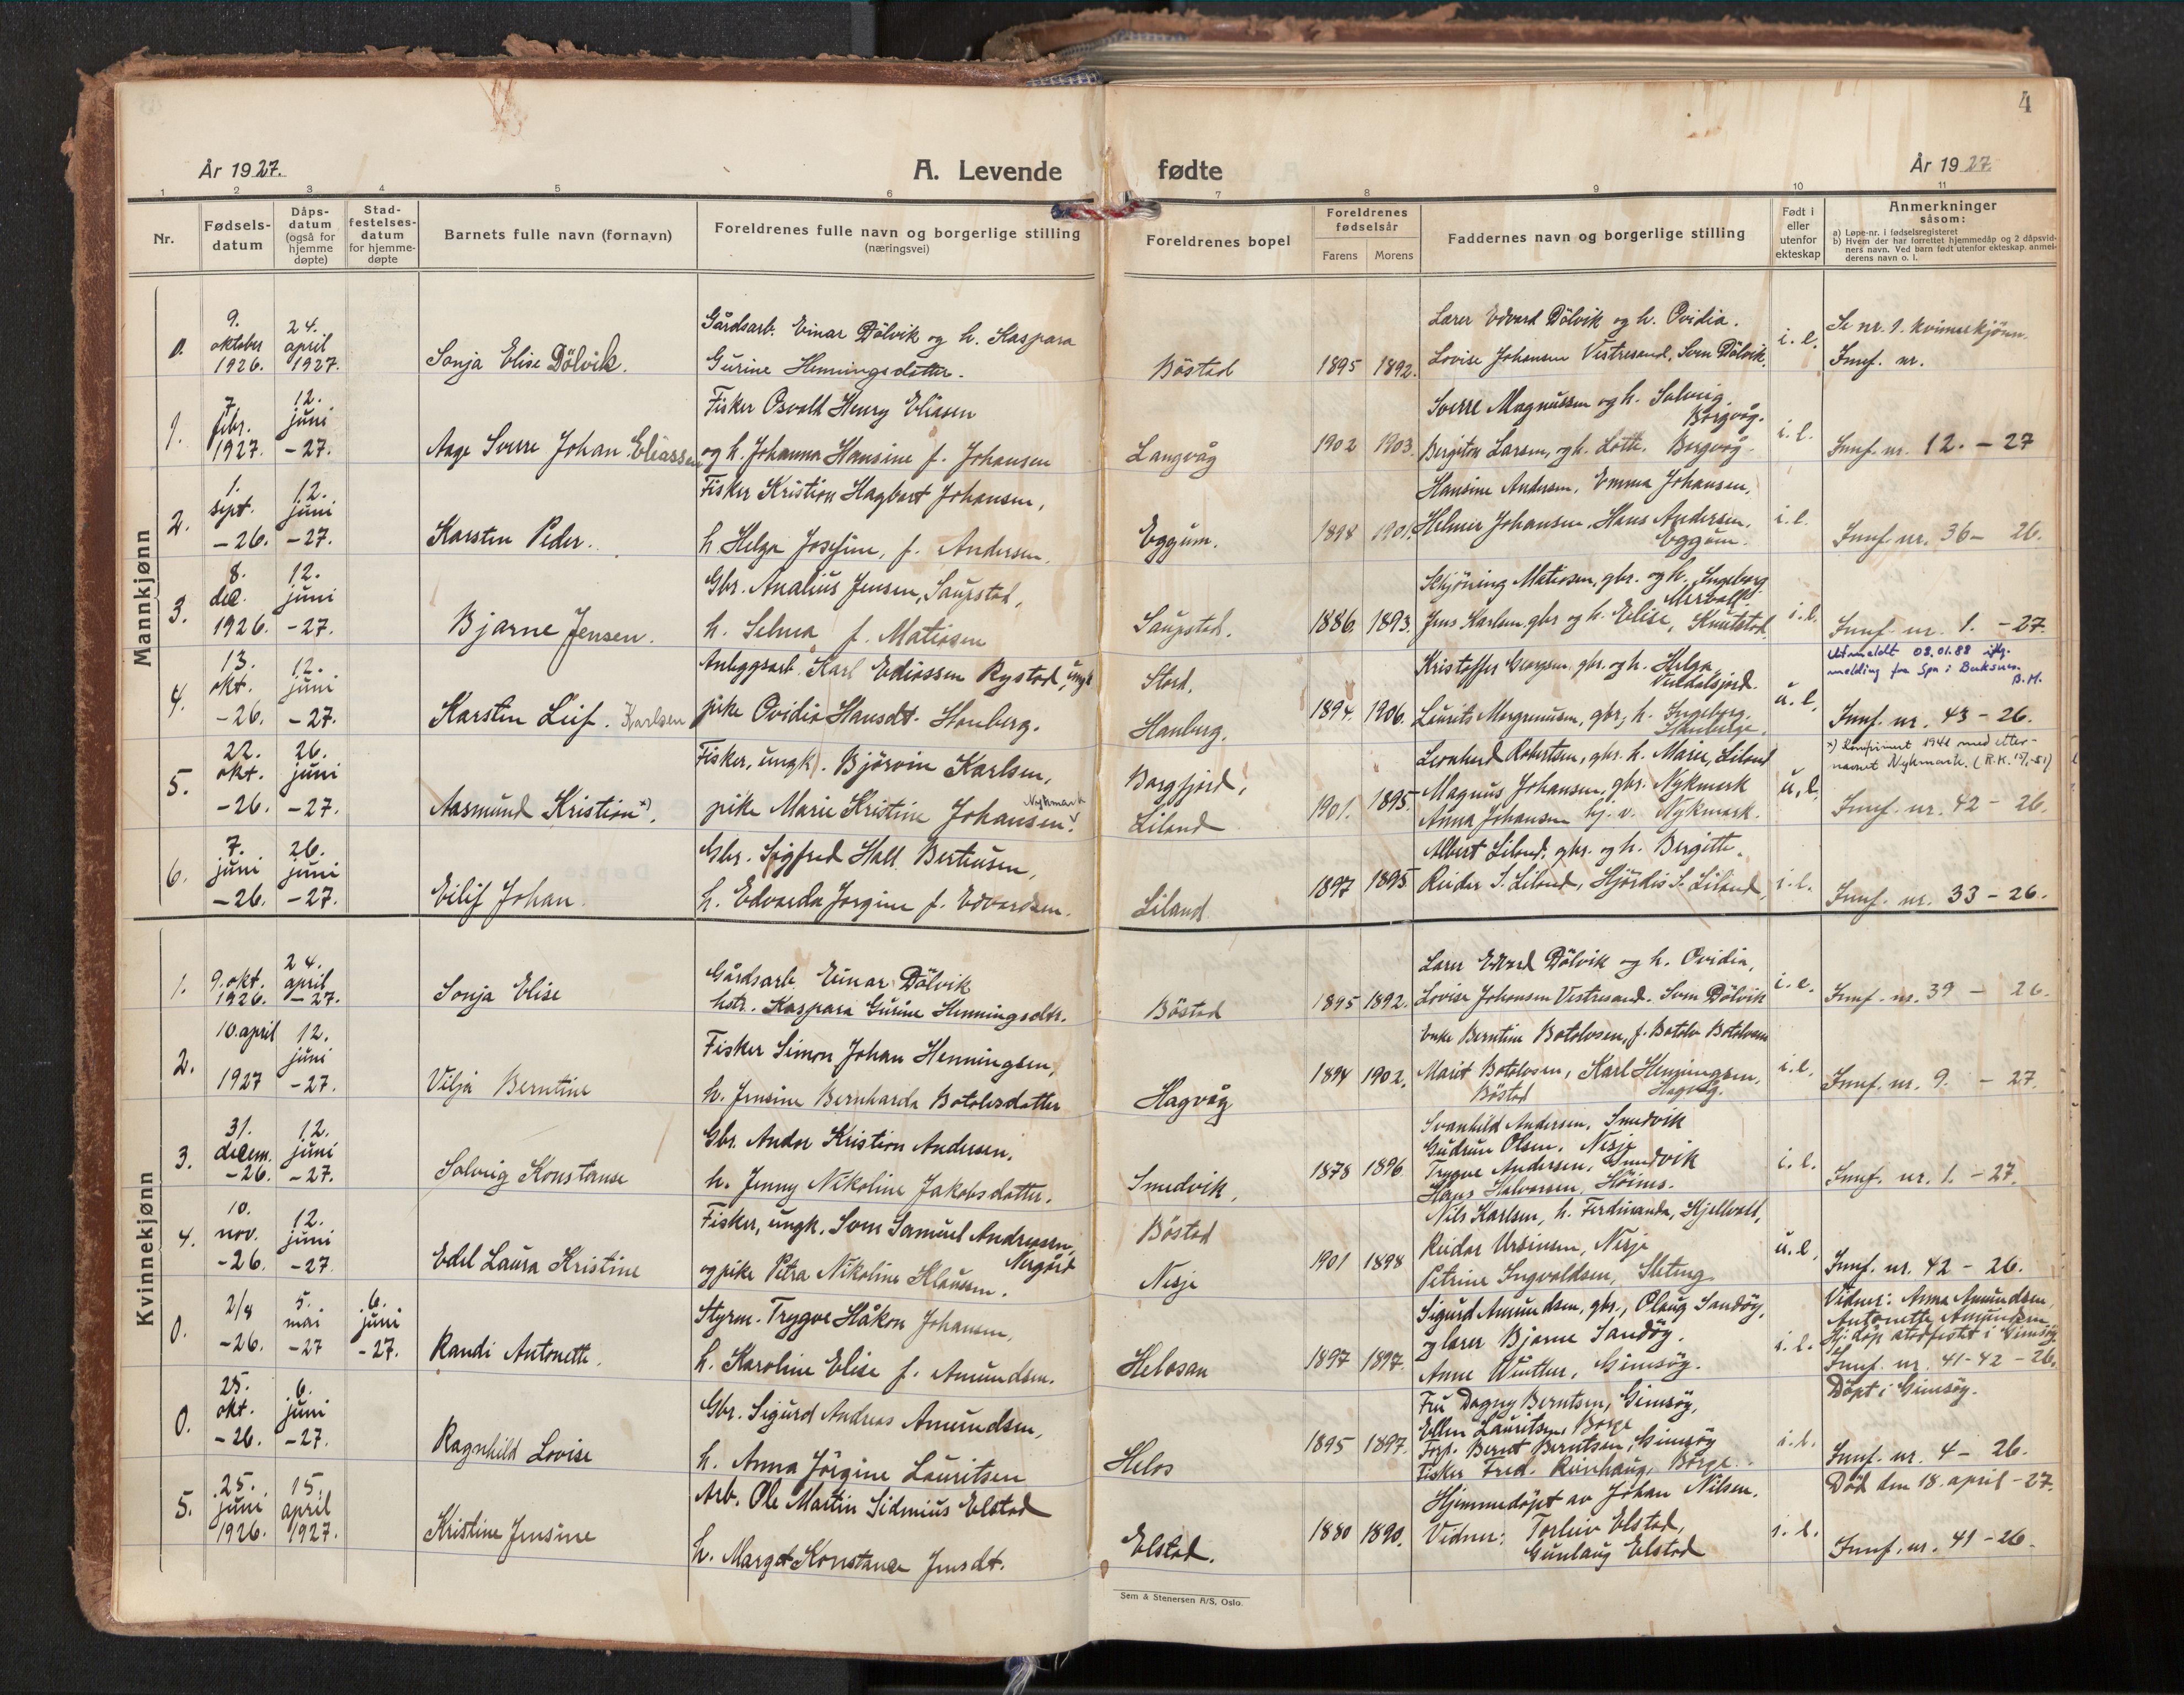 4
År 1927.
A. Levende fødte
År 1927.
1 2 3 4 5 6 7 8 9 10 11
Nr.
Fødsels-datum
Dåps-datum (også for hjemme døpte)
Stad-festelses-datum for hjemme-døpte
Barnets fulle navn (fornavn)
Foreldrenes fulle navn og borgerlige stilling (næringsvei)
Foreldrenes bopel
Foreldrenes fødselsår
Farens Morens
Faddernes navn og borgerlige stilling
Født i eller utenfor ekteskap
Anmerkninger såsom:
a) Løpe-nr. i fødselsregisteret
b) Hvem der har forrettet hjemmedåp og 2 dåpsvid-
ners navn. Ved barn født utenfor ekteskap anmel-
derens navn o. l.
Mannkjønn
0. 9. oktober 1926. 24. april 1927.
Sonja Elise Dölvik.
Gårdsarb. Einar Dölvik og h. Kaspara
Gurine Henningsdatter.
Böstad 1895 1892.
Lærer Edvard Dölvik og h. Ovidia.
Lovise Johansen Vestresand, Sven Dölvik.
i. e.
Se nr. 1. kvinnekjönn.
Innf. nr.
1. 7. febr. 1927. 12. juni -27.
Aage Sverre Johan Eliassen
Fisker Osvald Henry Eliasen
og h. Johanna Hansine f. Johansen
Langvåg 1902 1903.
Sverre Magnussen og h. Solveig.
Borgvåg.
Bergiton Larsen, og h. Lotte. Borgvåg.
i. e.
Innf. nr. 12. - 27
2. 1. sept. -26. 12. juni -27.
Karsten Peder.
Fisker Kristian Hagbart Johansen,
h. Helga Josefine, f. Andersen.
Eggum. 1898 1901.
Hansine Andersen, Emma Johansen,
Helmer Johansen. Hans Andersen,
Eggum.
i. e.
Innf. nr. 36 - 26.
3. 8. dec. 1926. 12. juni -27.
Bjarne Jensen.
Gbr. Analius Jensen, Saupstad,
h. Selma f. Matiasen
Saupstad. 1886. 1893.
Schjöning Matiasen, gbr. og h. Ingeborg
Jens Karlsen gbr og h. Elise, Knutstad
i. e.
Innf. nr. 1. - 27.
4. 13. okt. -26. 12. juni -27.
Karsten Leif. Karlsen
Anleggsarb. Karl Ediassen Rystad, ungk
pike Ovidia Hansdt. Hauberg.
Stord.
Hauberg. 1894. 1906.
Kristoffer Georgsen, gbr. og h. Helga
Laurits Margrenusen, gbr, h. Ingeborg.
u. e.
Utmeldt 08.01.88 iflg.
melding fra Spr i Buksnes.
B.H.
Innf. nr. 43 - 26.
5. 22. okt. -26. 26. juni -27.
Aasmund Kristian x).
Fisker, ungk. Björvin Karlsen,
pike Marie Kristine Johansen. Nykmark
Borgfjord,
Liland 1901. 1895
Leonhard Robertsen, gbr. h. Marie, Liland
Magnus Johansen, gbr. Nykmark
Anna Johansen hj. v. Nykmark.
u. e.
x) konfirmert 1941 med etter-
navnet Nykmark.
Innf. nr. 42 - 26.
6. 7. juni -26. 26. juni -27.
Eilif Johan
Gbr. Sigfred Hall Bertiusen,
h. Edvarda Jorgine f. Edvardsen.
Liland 1897 1895
Albert Liland, gbr. og h. Bergitte.
Reidar S. Liland, Hjördis S. Liland,
i. e.
Innf. nr. 33 - 26.
Kvinnekjønn
1. 9. okt. 1926. 24. april -27.
Sonja Elise
Gårdsarb. Einar Dölvik
hstr. Kaspara Gurine Henningsdtr.
Böstad 1895 1892.
Lærer Edvard Dölvik og h. Ovidia,
Lovise Johansen Vestresand. Sven Dölvik
i. e.
Innf. nr. 39 - 26.
2. 10. april 1927 12. juni -27.
Vilja Berntine
Fisker Simon Johan Henningsen,
h. Jensine Bernharda Botolvsdatter
Hagvåg 1894 1902.
Enke Berntine Botolvsen, f. Botolv Botolvsen
Marit Botolvsen, Karl Henningsen,
Böstad Hagvåg.
i. e.
Innf. nr. 9. - 27.
3. 31. decem. -26. 12. juni -27.
Solveig Konstanse
Gbr. Andor Kristian Andersen,
h. Jenny Nikoline Jakobsdatter.
Smedvik, 1878 1896
Svanhild Andersen, Smedvik
Gudrun Olsen, Nesje
Trygve Andersen, Smedvik
Hans Halvorsen, Höines.
i. e.
Innf. nr. 1. - 27.
4. 10. nov. -26. 12. juni -27
Edel Laura Kristine
Fisker, ungk. Sven Samuel Andreassen,
Nergård
og pike Petra Nikoline Klausen.
Böstad
Nesje 1901 1898
Nils Karlsen, h. Ferdinanda, Hjellvoll,
Reidar Ursinsen, Nesje
Petrine Ingvaldsen, Sleteng
u. e.
Innf. nr. 42 - 26.
0. 2/8 -26. 5. mai -27 6. juni -27.
Randi Antonette.
Styrm. Trygve Håkon Johansen,
h. Karoline Elise f. Amundsen.
Helosan 1897 1897.
Sigurd Amundsen, gbr., Olaug Sandöy,
og lærer Bjarne Sandöy.
Anne Winther, Gimsöy.
i. e.
Vidner: Anna Amundsen,
Antonette Amundsen
Hj. döp stadfestet i Gimsöy
Innf. nr. 41-42 - 26.
0. 25. okt. -26. 6. juni -27.
Ragnhild Lovise
Gbr. Sigurd Andreas Amundsen,
h. Anna Jörgine Lauritsen
Helos 1895 1897.
Fru Dagny Berntsen, Gimsöy,
Ellen Lauritsen, Borge
Forp. Bernt Berntsen, Gimsöy
Fisker Fred. Reinhaug, Borge.
i. e.
Döpt i Gimsöy.
Innf. nr. 4 - 26.
5. 25. juni 1926. 15. april 1927.
Kristine Jensine
Arb. Ole Martin Sidenius Elstad
h. Margot Konstance Jensdt.
Elstad. 1880 1890.
Hjemmedöpt av Johan Nilsen.
Vidner: Torleiv Elstad,
Gunlaug Elstad
i. e.
Död den 18. april -27.
Innf. nr. 41 - 26.
Sem & Stenersen A/S, Oslo.